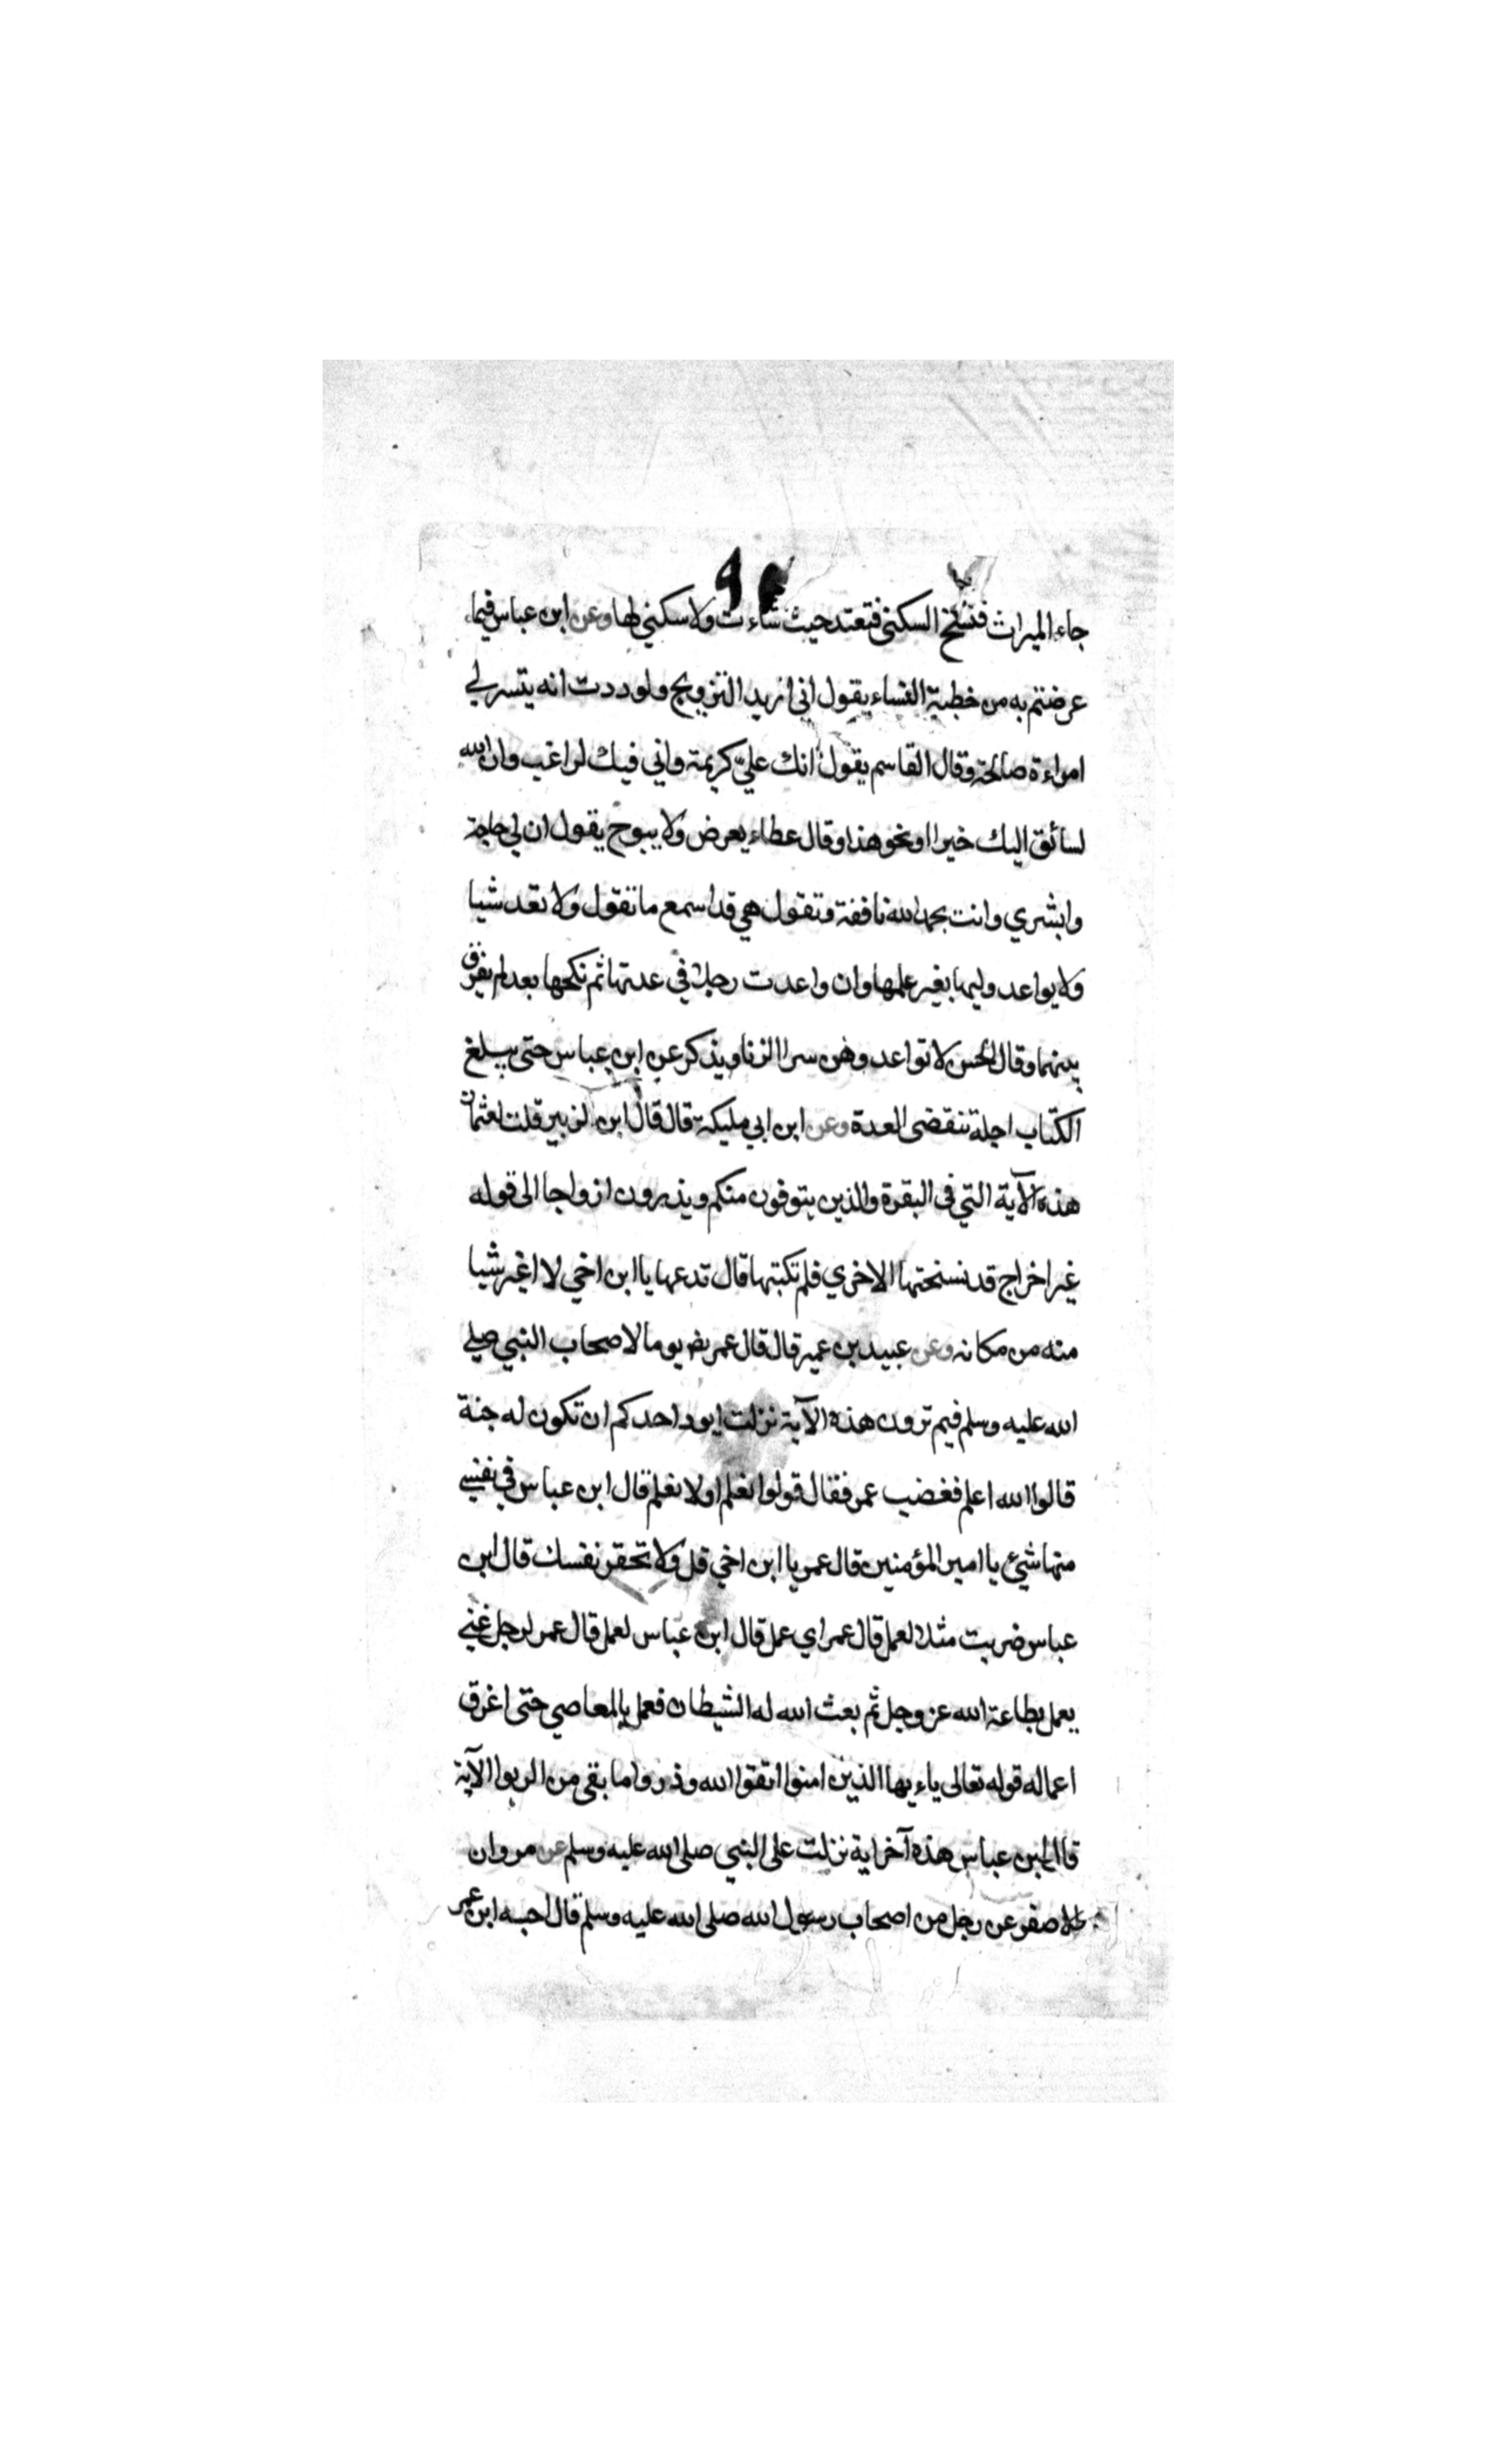 جاء الميراث فنسخ السكنى فتعتد حيث شاءت ولا سكنى لها وعن ابن عباس فيما
عرضتم به من خطبة النساء يقول اني اريد التزويج ولوددت انه يتسر لي
امراءة صالحة وقال القاسم يقول انك علي كريمة واني فيك لراغب وان الله
لسائق اليك خيرا او نحو هذا وقال عطاء يعرض ولا يبوح يقول ان لي حاجة
وابشري وانت بحمد الله نافقة وتقول هي قد اسمع ما تقول ولا تعد شيا
ولا يواعد وليها بغير علمها وان واعدت رجلا في عدتها ثم نكحها بعد لم يفرق
بينهما وقال الحسن لا تواعدوهن سرا الزنا ويذكر عن ابن عباس حتى يبلغ
الكتاب اجلة تنقضى العدة وعن ابن ابي مليكة قال قال ابن الزبير قلت لعثمان
هذه الآية التي في البقرة والذين يتوفون منكم ويذرون ازواجا الى قوله
غير اخراج قد نسختها الاخري فلم تكتبها قال تدعها يا ابن اخي لا اغير شيا
منه من مكانه وعن عبيد بن عمير قال قال عمر يوما لاصحاب النبي صلي
الله عليه وسلم فيم ترون هذه الآية نزلت ايود احدكم ان تكون له جنة
قالوا الله اعلم فغضب عمر فقال قولوا نعلم او لا نعلم قال ابن عباس في نفسي
منها شيئ يا امير المؤمنين قال عمر يا ابن اخي قل ولا تحقر نفسك قال ابن
عباس ضربت مثلا لعمل قال عمر اي عمل قال ابن عباس لعمل قال عمر لرجل غني
يعمل بطاعة الله عز وجل ثم بعث الله له الشيطان فعمل بالمعاصي حتى اغرق
اعماله قوله تعالى ياءيها الذين امنوا اتقوا الله وذروا ما بقى من الربوا الآية
قال ابن عباس هذه آخر اية نزلت على النبي صلى الله عليه وسلم عن مروان
الاصفر عن رجل من اصحاب رسول الله صلى الله عليه وسلم قال احسبه ابن عمر